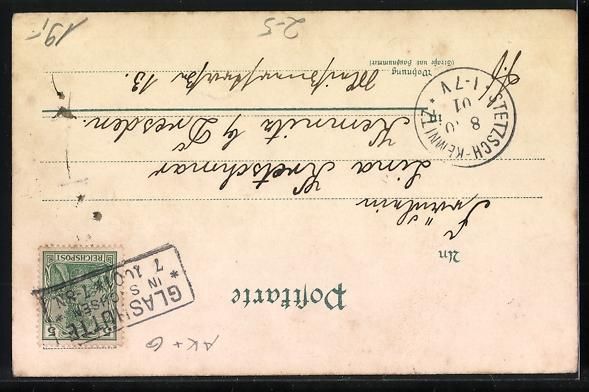 Postkarte
An
Fräulein
Lina Kretschmar
Kemnitz b/ Dresden.
Wohnung
(Straße und Hausnummer)
Meißnerstraße 13.
STETZSCH-KEMNITZ
1-7V
GLASHÜTTE
IN SACHSEN
7-8N
REICHSPOST
5
5
AK + G
2-5
19,-